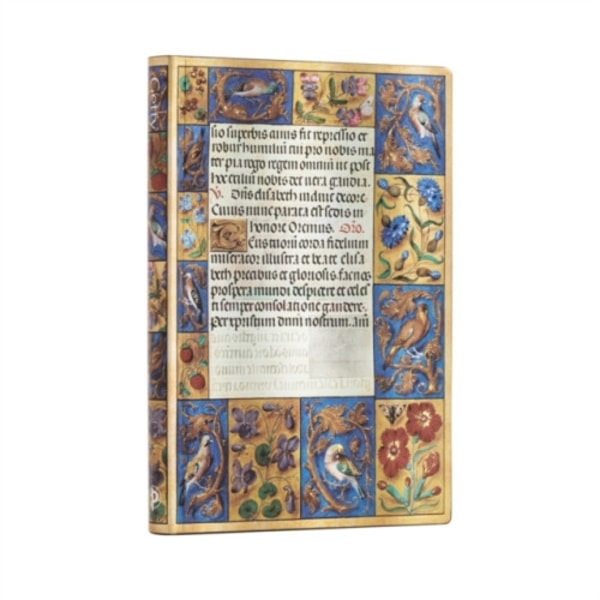 sio superbis anus fit repressio et
robur humiliũ tui pro nobis ma
ter pia rogo regem omniũ ut post
hoc exiliũ nobis det uera gaudia.
V. Dñs elisabeth induit decore.
Cuius nunc parata est sedis in
honore Oremus. Orõ.
Deus tuorũ corda fidelium
miserator illustra et beate elisa
beth precibus et gloriosis fac nos
prospera mundi despicere et celes
ti semper consolatione gaudere.
Per xpristum dnm nostrum. am̃